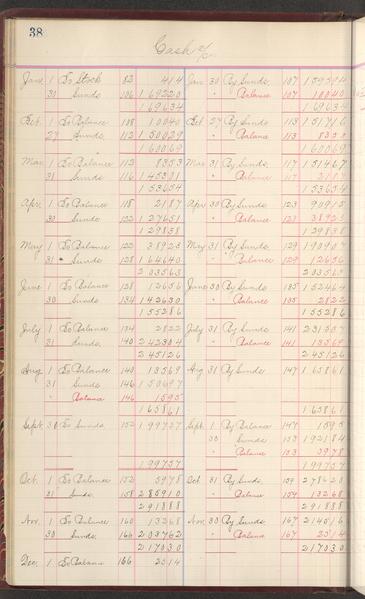 38
Cash a/c
June 1 To Stock 82 414 Jan 30 By Sunds. 107 159394
30 Sunds 106 169220 " Balance 107 10040
169634 169634
Oct. 1 To Balance 108 10040 Oct 27 By Sunds. 113 151716
27 Sunds. 112 150029 " Balance 113 8353
160069 160069
Mar 1 To Balance 113 8353 Mar 31 By Sunds. 117 151467
31 Sunds 116 145301 " Balance 117 2187
153654 153654
Apr. 1 To Balance 118 2187 Apr 30 By Sunds. 123 90915
30 Sunds. 122 127651 " Balance 123 38923
129838 129838
May 1 To Balance 122 38923 May 31 By Sunds. 129 190907
31 " Sunds 128 164640 " Balance 129 12656
203563 203563
June 1 To Balance 128 12656 June 30 By Sunds 135 152464
30 Sunds. 134 142630 " Balance 135 2822
155286 155286
July 1 To Balance 134 2822 July 31 By Sunds. 141 231557
31 Sunds. 140 242304 " Balance 141 13569
245126 245126
Aug 1 To Balance 140 13569 Aug 31 By Sunds. 147 165861
31 Sunds 146 150697
" Balance 146 1595
165861 165861
Sept. 30 To Sunds. 152 199757 Sept. 1 By Balance 147 1595
30 Sunds 153 192184
" Balance 153 5978
199757 199757
Oct. 1 To Balance 152 5978 Oct 31 By Sunds. 159 278620
31 Sunds. 158 285910 " Balance 159 13268
291888 291888
Nov. 1 To Balance 160 13268 Nov. 30 By Sunds. 167 214516
30 Sunds. 166 203762 " Balance 167 2514
217030 217030
Dec. 1 To Balance 166 2514